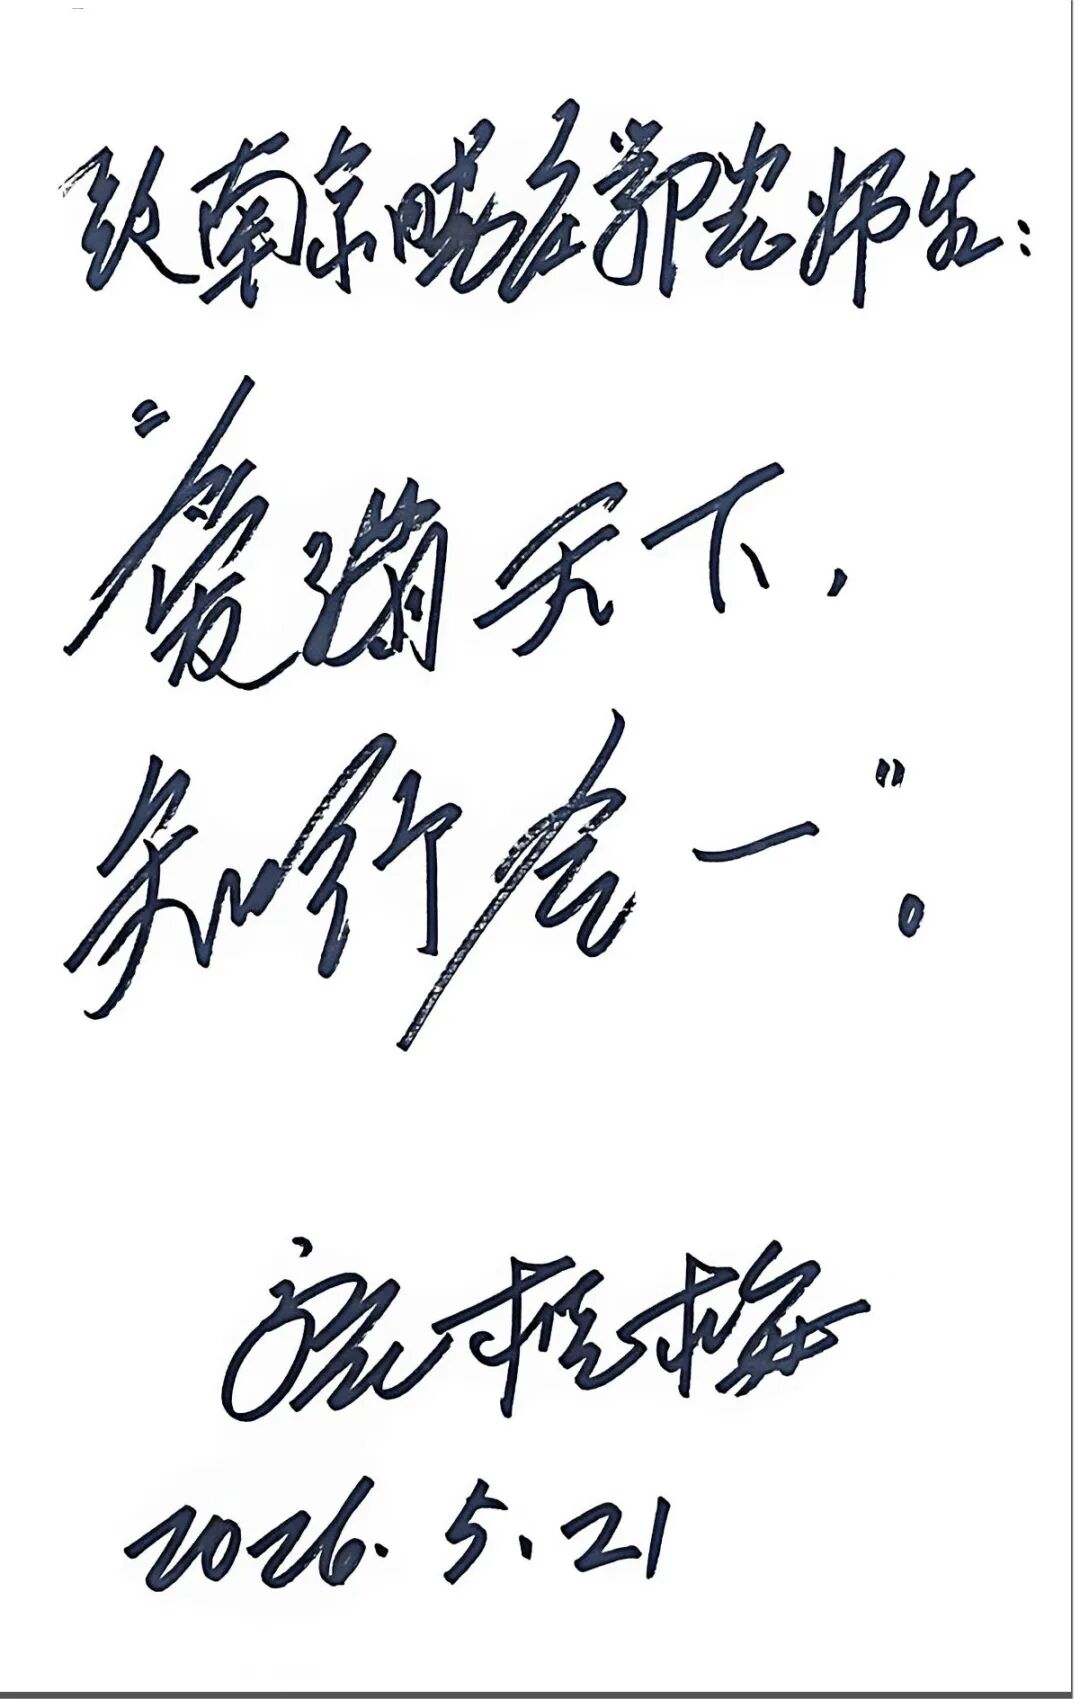 致南京晓庄学院师生：
“爱满天下，
知行合一”。
2026.5.21